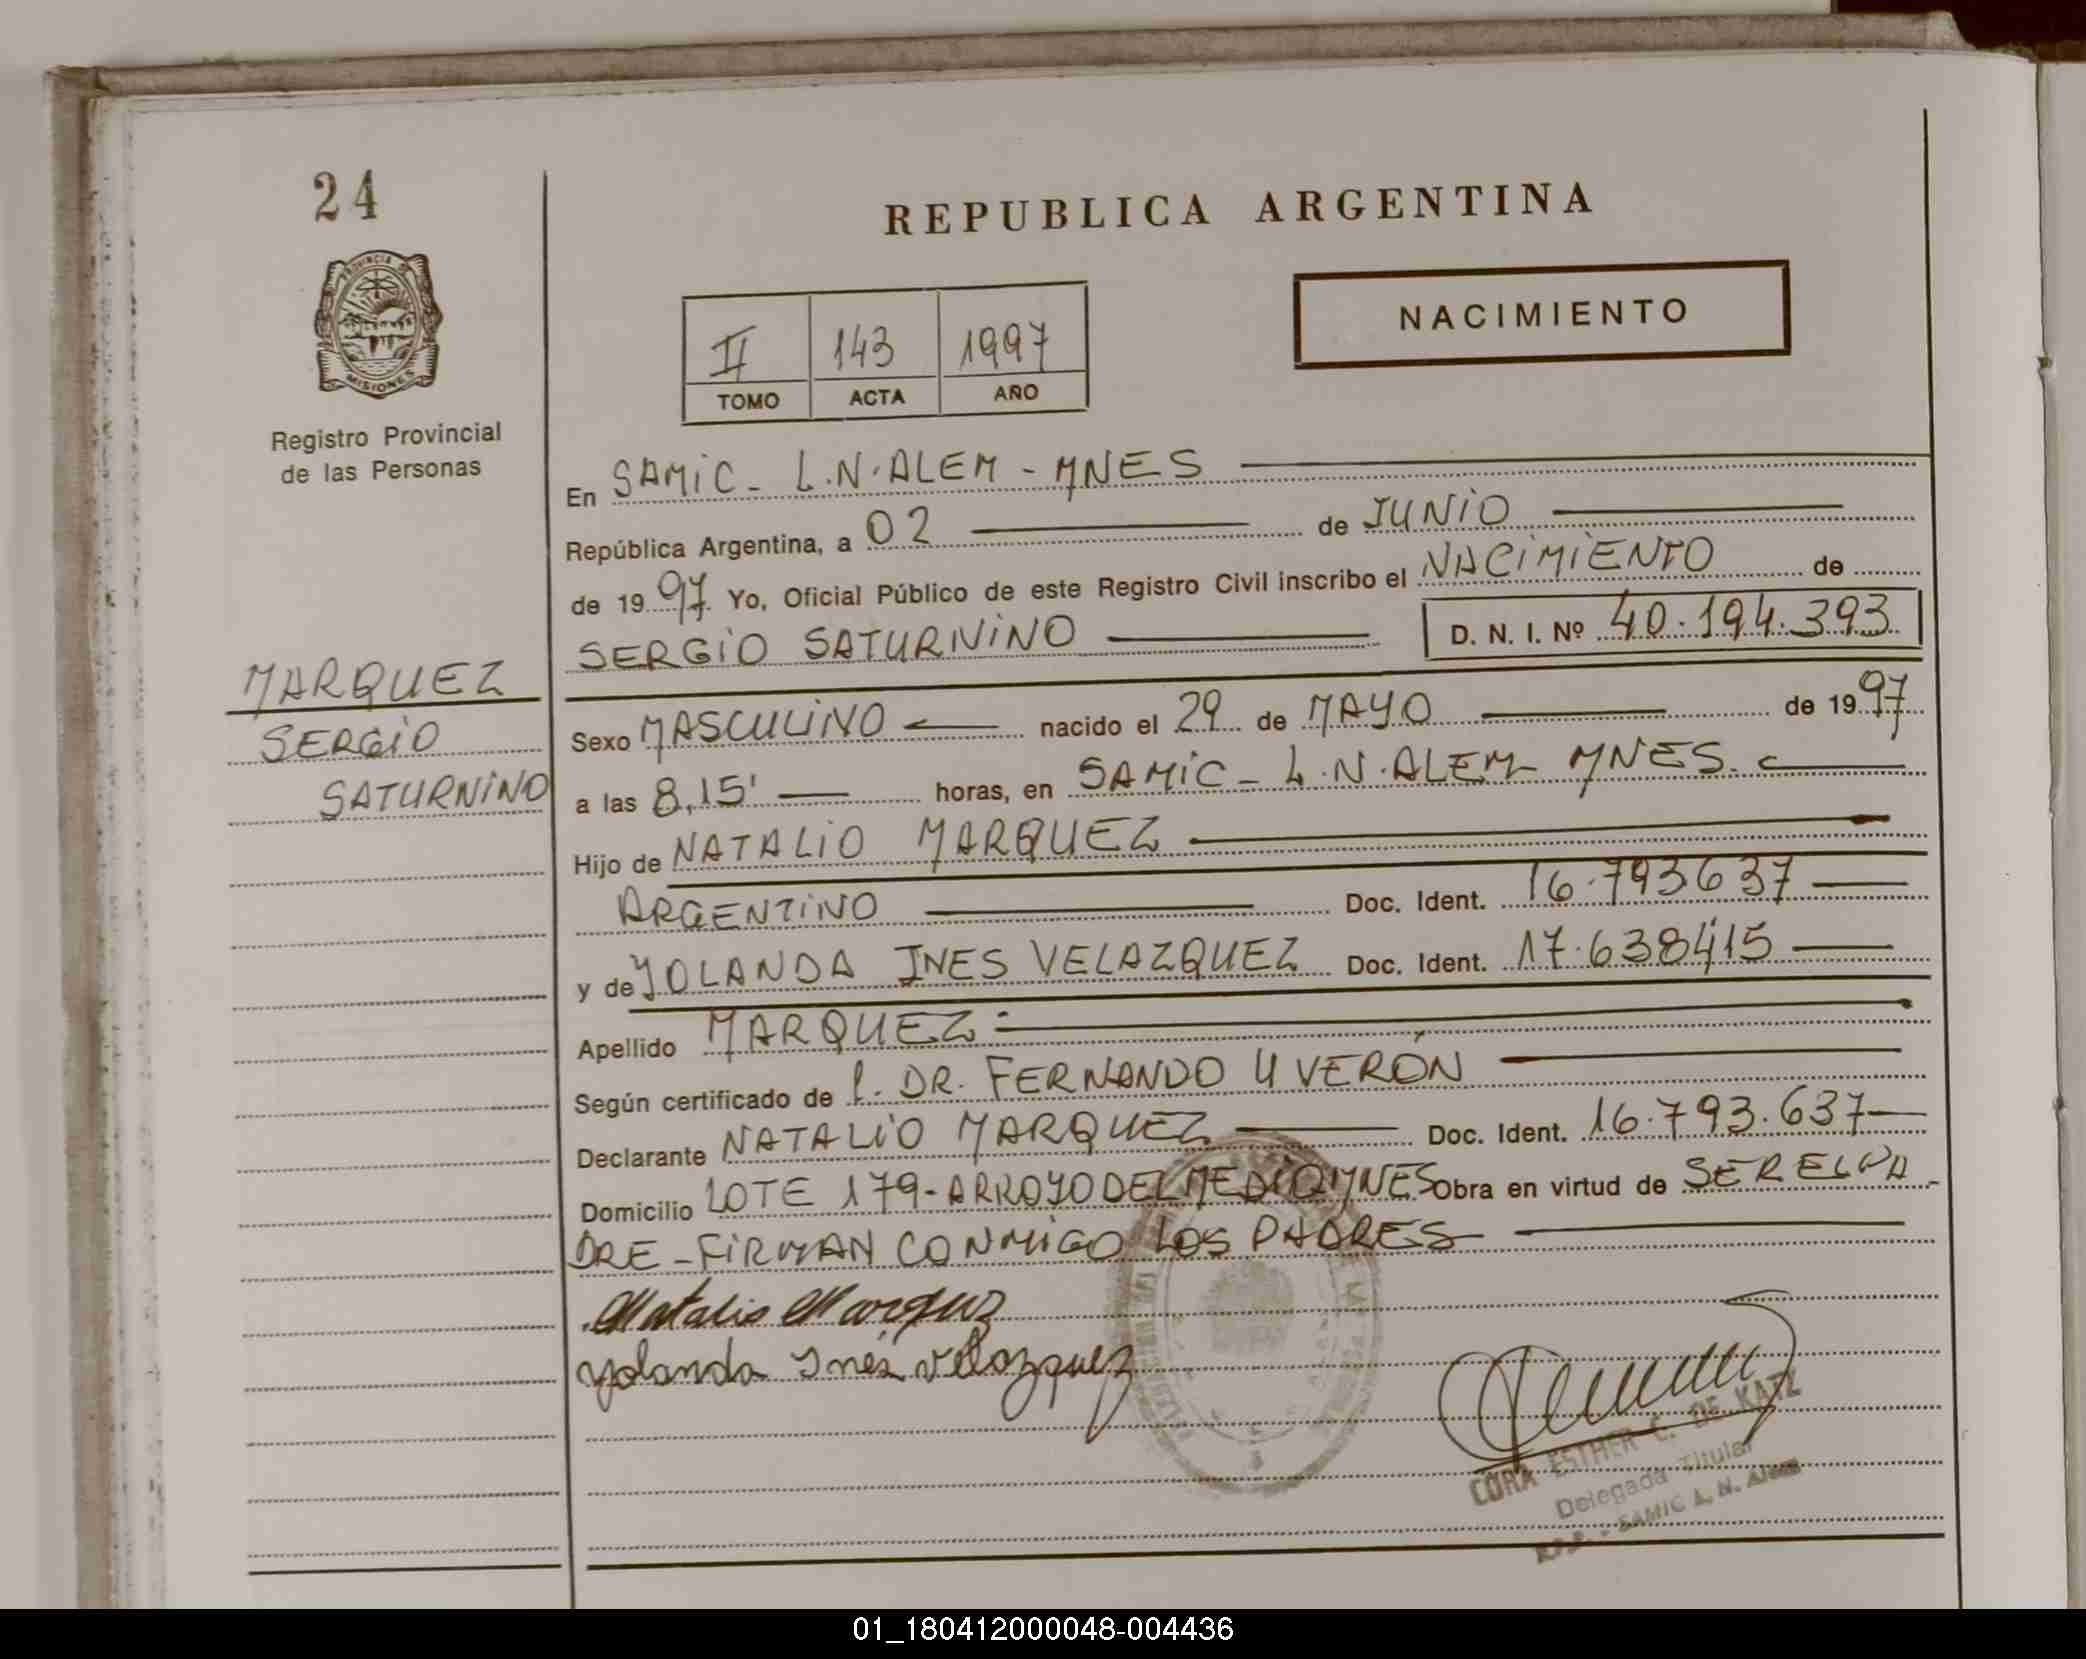 24
REPUBLICA ARGENTINA
PROVINCIA DE
MISIONES
NACIMIENTO
II 143 1997
TOMO ACTA AÑO
Registro Provincial
de las Personas
MARQUEZ
SERGIO
SATURNINO
En SAMIC - L.N. ALEM - MNES
República Argentina, a 02 de JUNIO
de 1997. Yo, Oficial Público de este Registro Civil inscribo el NACIMIENTO de
SERGIO SATURNINO D. N. I. Nº 40.194.393
Sexo MASCULINO nacido el 29 de MAYO de 1997
a las 8,15' horas, en SAMIC - L.N. ALEM MNES.
Hijo de NATALIO MARQUEZ
ARGENTINO Doc. Ident. 16.793637
y de YOLANDA INES VELAZQUEZ Doc. Ident. 17.638415
Apellido MARQUEZ
Según certificado de P. DR. FERNANDO U VERÓN
Declarante NATALIO MARQUEZ Doc. Ident. 16.793.637
Domicilio LOTE 179 - ARROYO DEL MEDIO MNES Obra en virtud de SER EL PA
DRE - FIRMAN CONMIGO LOS PADRES
Natalio Marquez
Yolanda Inés Velazquez
CORA ESTHER C. DE KATZ
Delegada Titular
R.P.P. - SAMIC L. N. Alem
01_180412000048-004436